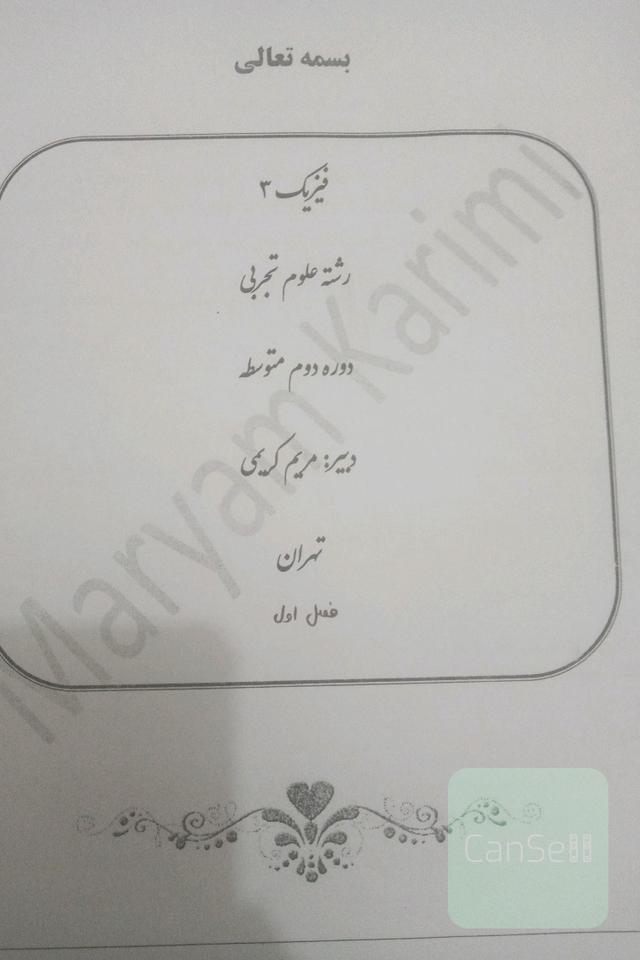 بسمه تعالی
فیزیک ۳
رشته علوم تجربی
دوره دوم متوسطه
دبیر: مریم کریمی
تهران
فصل اول
Maryam Karimi
CanSell